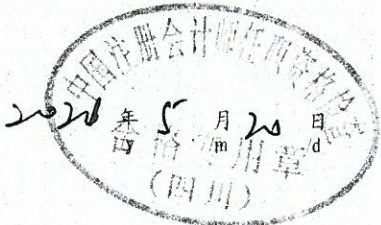 中国注册会计师任职资格检查
2020 年 5 月 20 日
y m d
合格专用章
(四川)